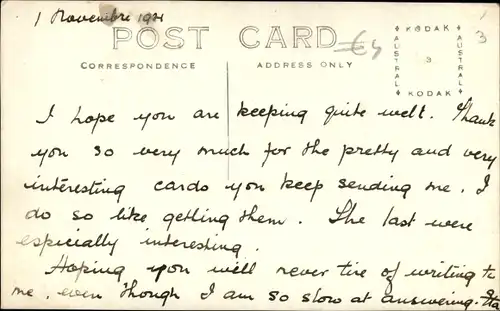 1 Novembre 1921
POST CARD
CORRESPONDENCE
ADDRESS ONLY
KODAK
AUSTRAL
3
AUSTRAL
KODAK
3
I hope you are keeping quite well. Thank
you so very much for the pretty and very
interesting cards you keep sending me. I
do so like getting them. The last were
especially interesting.
Hoping you will never tire of writing to
me, even though I am so slow at answering.